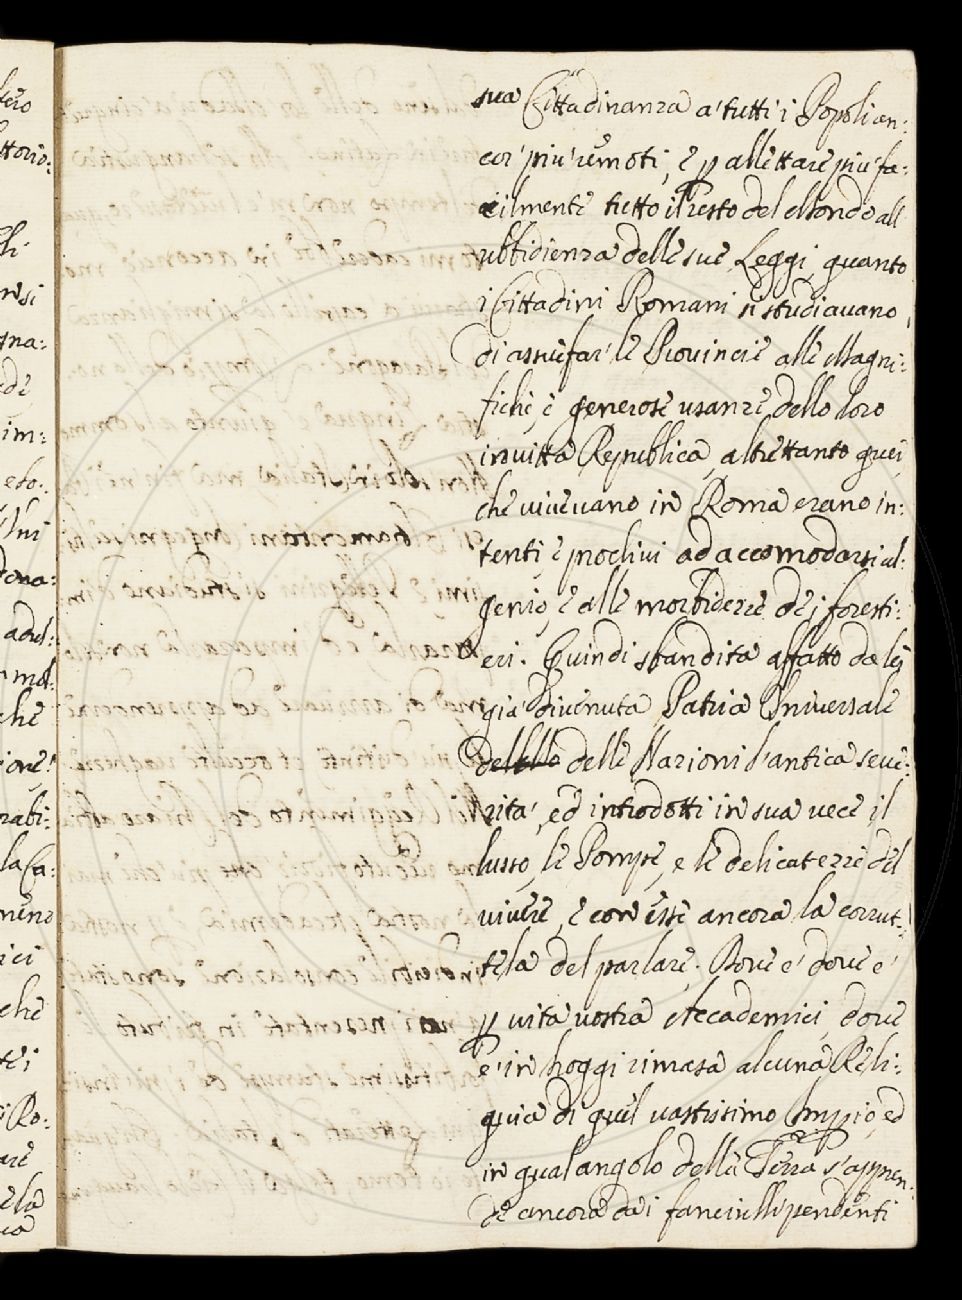 sua Cittadinanza a' tutti i Popoli an:
cor' piu' remoti, e p allettare piu' fa:
cilmente tutto il resto del Mondo all
ubbidienza delle sue Leggi, quanto
i Cittadini Romani si studiavano
di assuefar' le Provincie alle Magni:
fiche, e generose usanze, dello loro
invitta Republica, altrettanto quei
che vivevano in Roma erano in:
tenti, e proclivi ad accomodarsi al
genio, e alle morbidezze de i foresti:
eri. Quindi sbandita affatto da lei
gia divenuta Patria Universale
delle Nazioni l'antica seve:
rita', ed introdotti in sua vece il
lusso, le Pompe, e le delicatezze del
vivere, e con esse ancora la corrut:
tela del parlare. Dove e' dove e'
p vita vostra Accademici, dove
e' in hoggi rimasa alcuna Reli:
quia di quel vastissimo Impio, ed
in qual angolo della Terra s'appren:
de ancora da i fanciulli pendenti